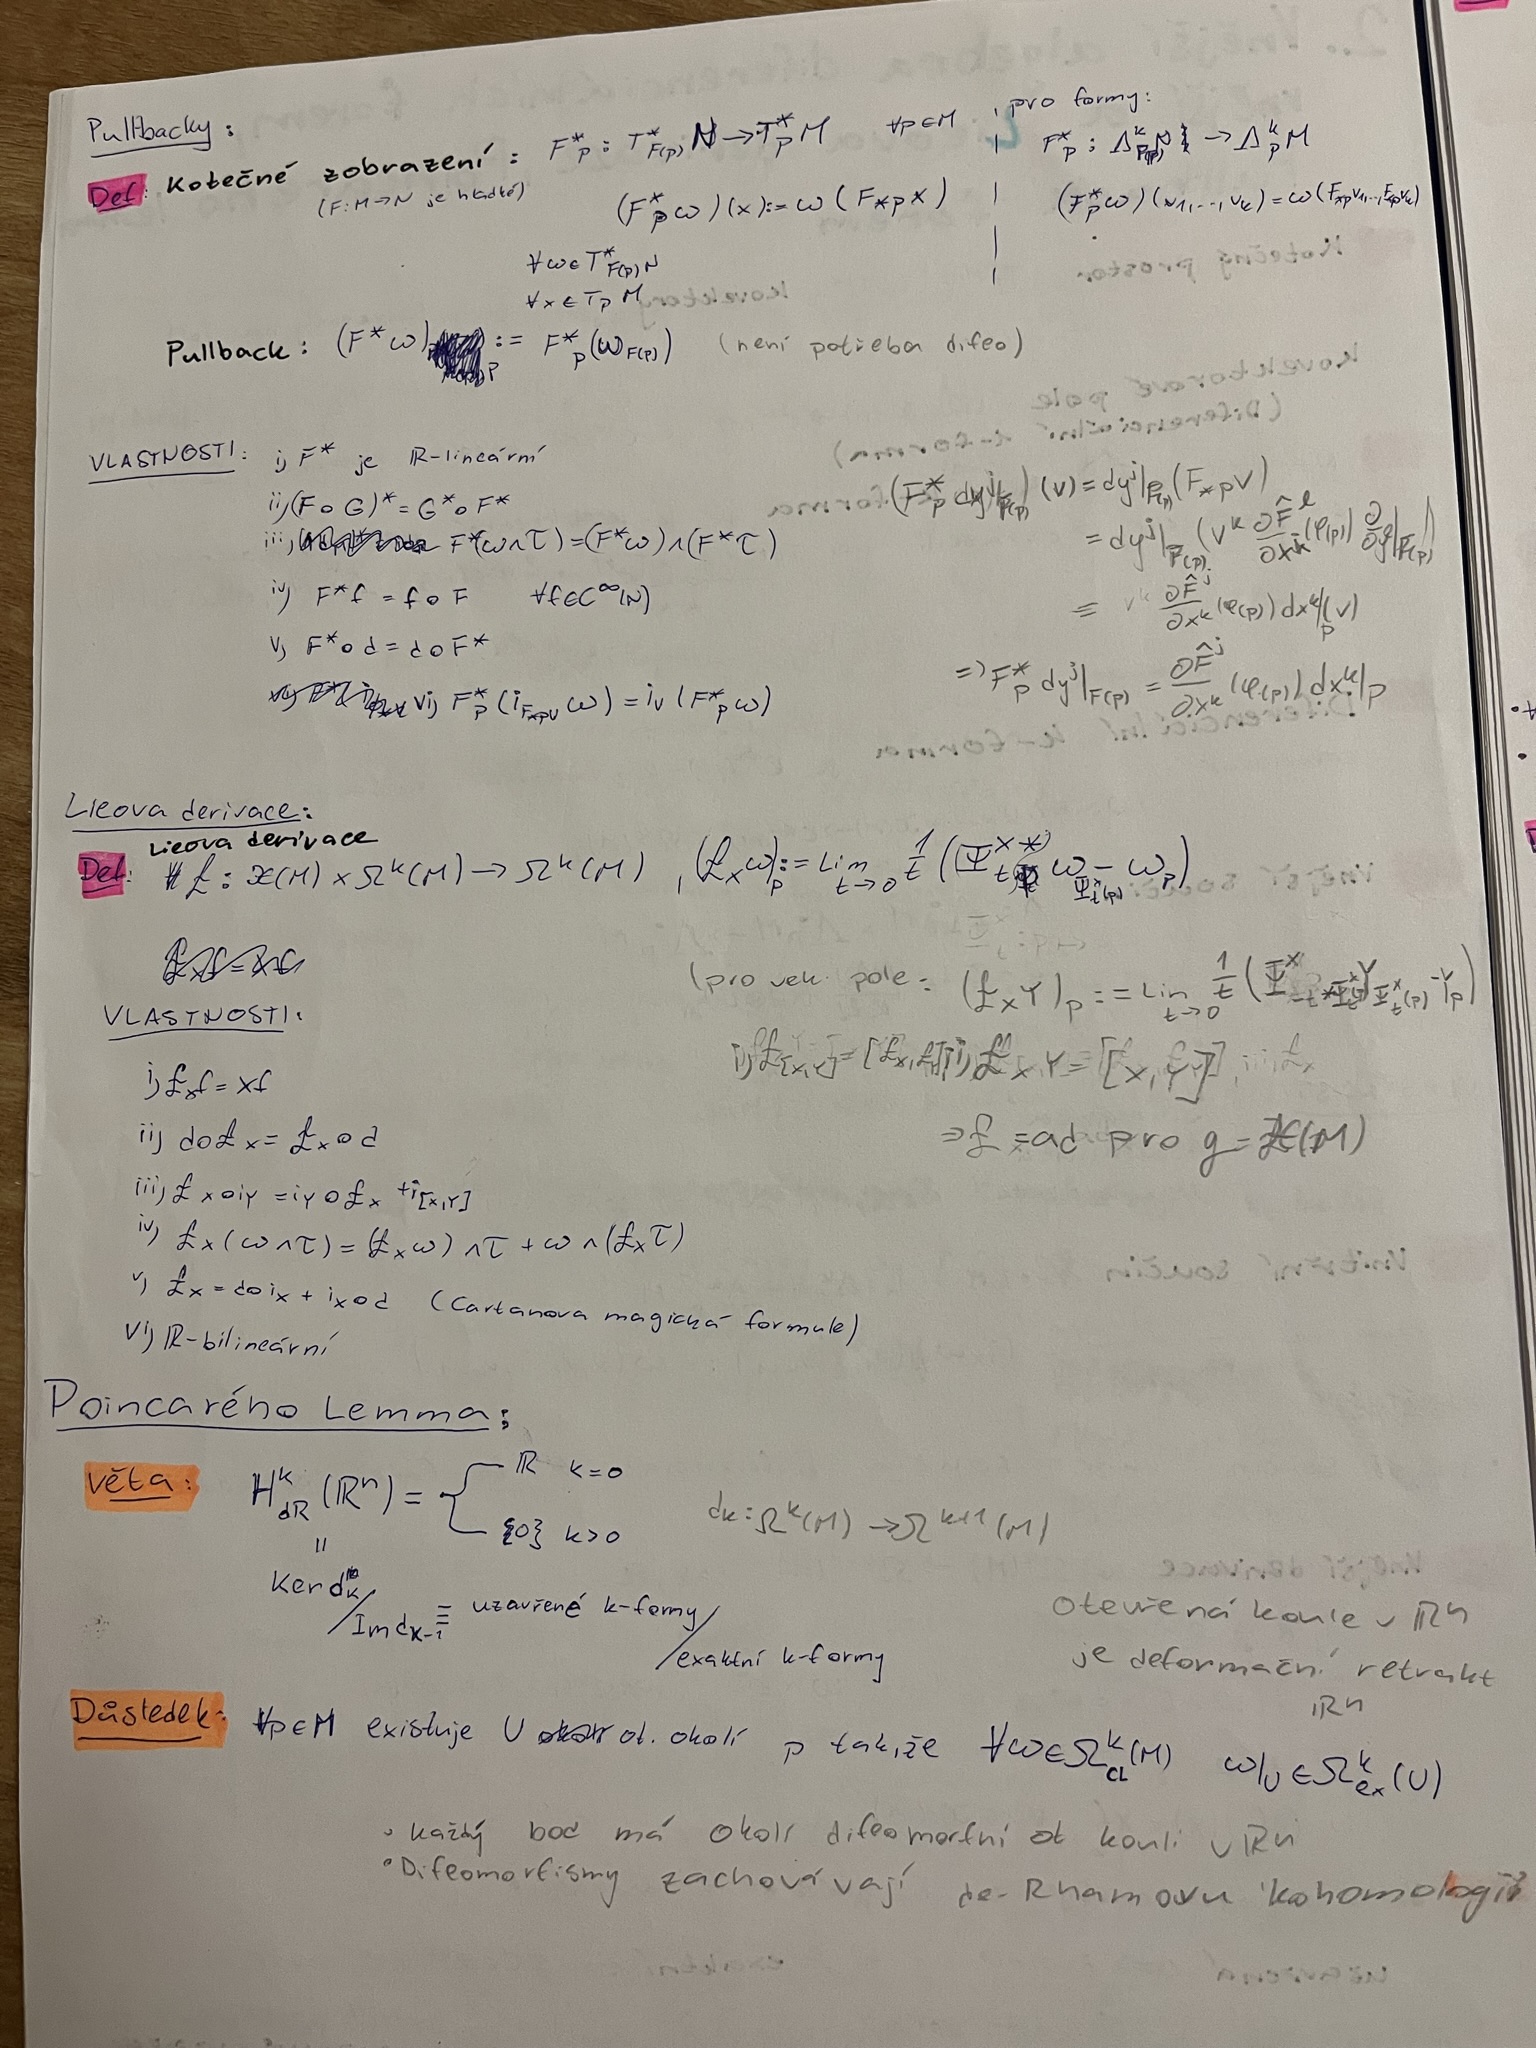 Pullbacky:
Def: Kotečné zobrazení: F*_p : T*_{F(p)} N → T*_p M ∀p∈M
(F: M→N je hladké)
(F*_p ω)(x) := ω(F_{*p} x)
∀ω∈T*_{F(p)}N
∀x∈T_p M
pro formy:
F*_p : Λ^k_{F(p)} N → Λ^k_p M
(F*_p ω)(v_1,...,v_k) = ω(F_{*p}v_1,...,F_{*p}v_k)
Pullback: (F*ω)_p := F*_p(ω_{F(p)}) (není potřeba difeo)
VLASTNOSTI:
i) F* je ℝ-lineární
ii) (F∘G)* = G*∘F*
iii) F*(ω∧τ) = (F*ω)∧(F*τ)
iv) F*f = f∘F ∀f∈C^∞(N)
v) F*∘d = d∘F*
vi) F*_p(i_{F_{*p}v} ω) = i_v(F*_p ω)
(F*_p dy^j|_{F(p)})(v) = dy^j|_{F(p)}(F_{*p}v)
= dy^j|_{F(p)}(v^k ∂F̂^l/∂x^k (φ(p)) ∂/∂y^l|_{F(p)})
= v^k ∂F̂^j/∂x^k (φ(p)) dx^k|_p(v)
=> F*_p dy^j|_{F(p)} = ∂F̂^j/∂x^k (φ(p)) dx^k|_p
Lieova derivace:
Lieova derivace
Def: £ : 𝔛(M) × Ω^k(M) → Ω^k(M), (£_x ω)_p := lim_{t→0} 1/t (Ψ^{x*}_{t,p} ω_{Ψ^x_t(p)} - ω_p)
(pro vek. pole: (£_x Y)_p := lim_{t→0} 1/t (Ψ^x_{-t*} Y_{Ψ^x_t(p)} - Y_p)
i) £_{[x,Y]} = [£_x, £_Y] ii) £_x Y = [x,Y]
⇒ £ = ad pro g = 𝔛(M)
VLASTNOSTI:
i) £_x f = xf
ii) d∘£_x = £_x∘d
iii) £_x∘i_Y = i_Y∘£_x + i_{[x,Y]}
iv) £_x(ω∧τ) = (£_xω)∧τ + ω∧(£_xτ)
v) £_x = d∘i_x + i_x∘d (Cartanova magická formule)
vi) ℝ-bilineární
Poincarého Lemma:
Věta: H^k_{dR}(ℝ^n) = { ℝ k=0
{0} k>0
d_k : Ω^k(M) → Ω^{k+1}(M)
=
Ker d_k / Im d_{k-1} ≡ uzavřené k-formy / exaktní k-formy
Otevřená koule v ℝ^n
je deformační retrakt
ℝ^n
Důsledek: ∀p∈M existuje U ot. okolí p tak, že ∀ω∈Ω^k_{CL}(M) ω|_U ∈ Ω^k_{ex}(U)
• každý bod má okolí difeomorfní ot kouli v ℝ^n
• Difeomorfismy zachovávají de-Rhamovu kohomologii